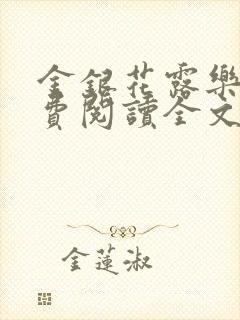 金銀花露樂
費閱讀全文
金蓮淑